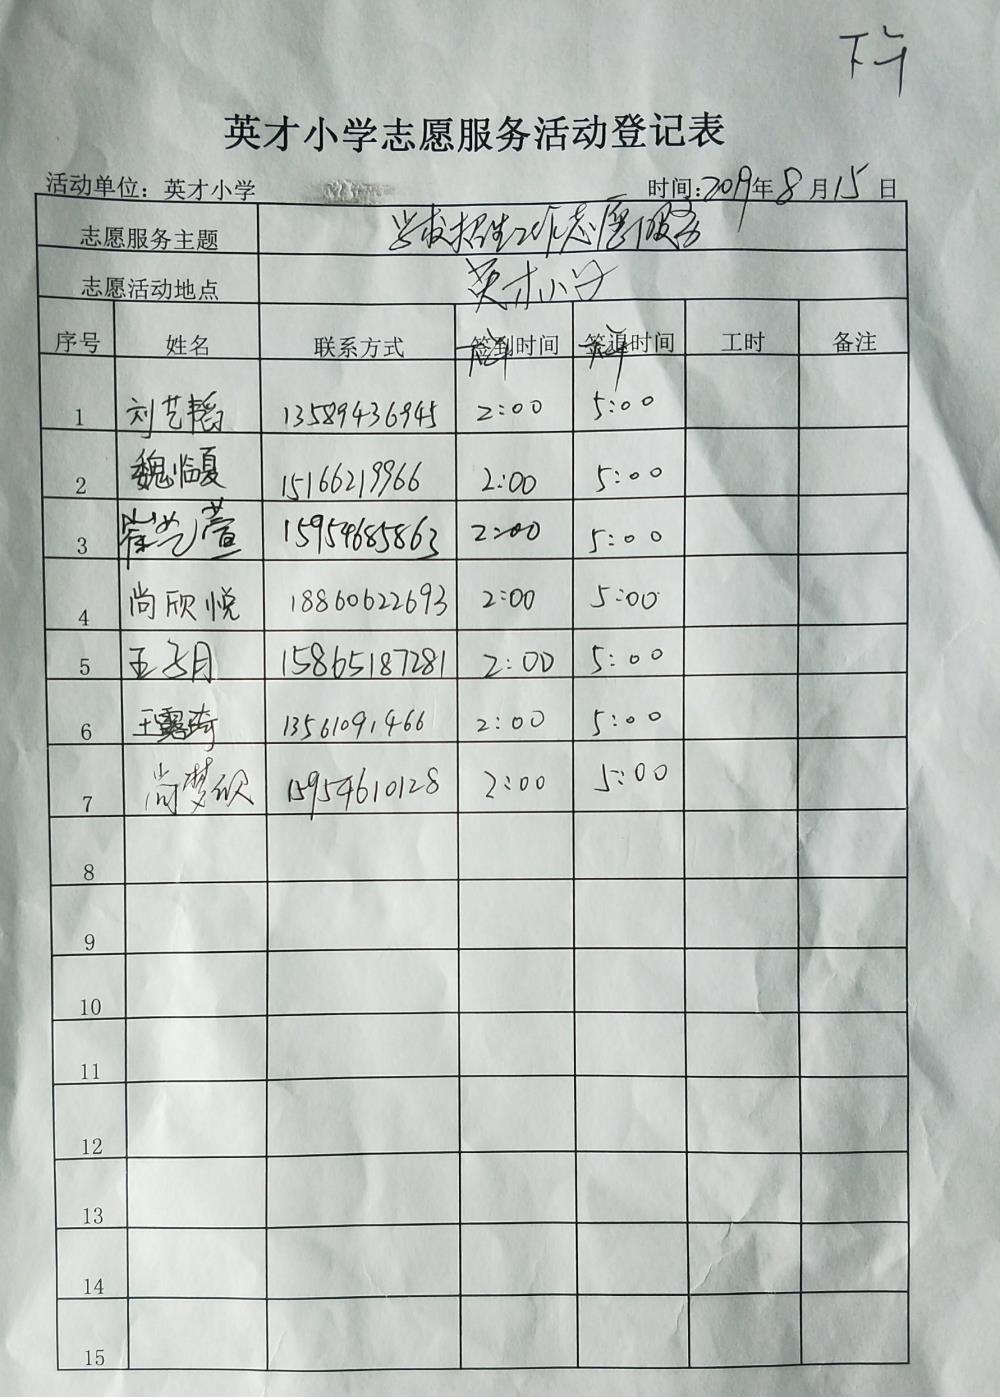 下午
英才小学志愿服务活动登记表
活动单位：英才小学 时间：2019年8月15日
志愿服务主题 学校招生工作志愿服务
志愿活动地点 英才小学
序号 姓名 联系方式 签到时间 签退时间 工时 备注
1 刘艺韬 13589436945 2:00 5:00
2 魏临夏 15166219966 2:00 5:00
3 崔艺萱 15954685863 2:00 5:00
4 尚欣悦 18860622693 2:00 5:00
5 王子月 15865187281 2:00 5:00
6 王露琦 13561091466 2:00 5:00
7 尚梦欣 15954610128 2:00 5:00
8
9
10
11
12
13
14
15